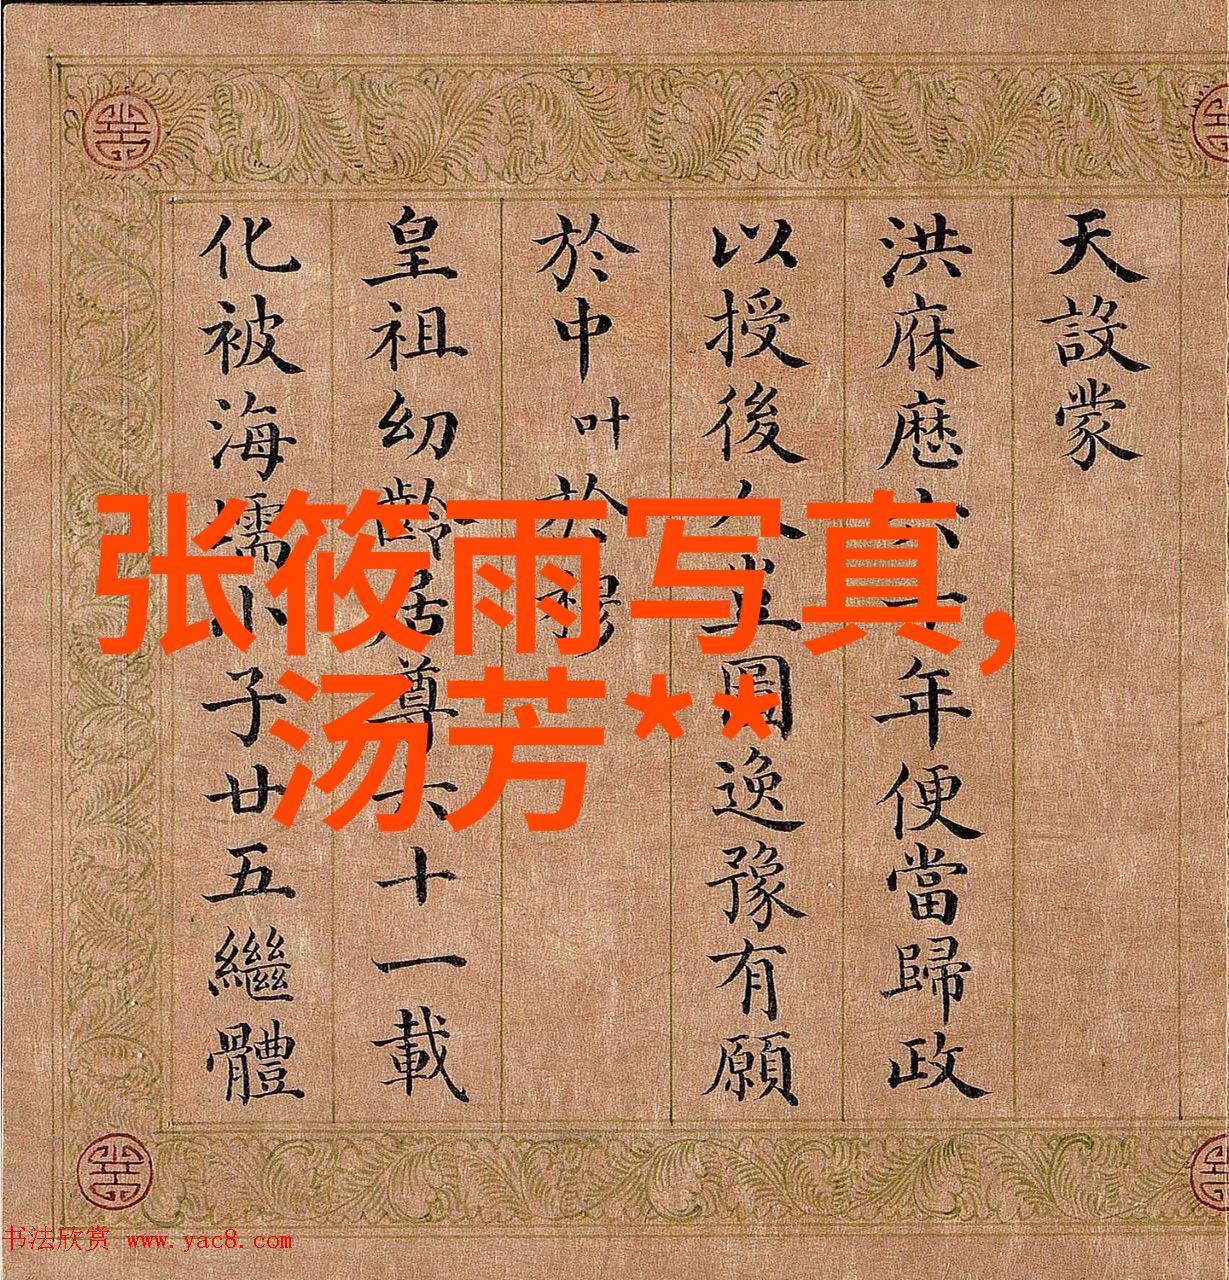 天設蒙
洪庥歷六十年便當歸政
以授後人豈圖逸豫有願
於中叶於穆
皇祖幼齡居尊六十一載
化被海壖小子廿五繼體
张筱雨写真,
汤芳**
书法欣赏 www.yac8.com